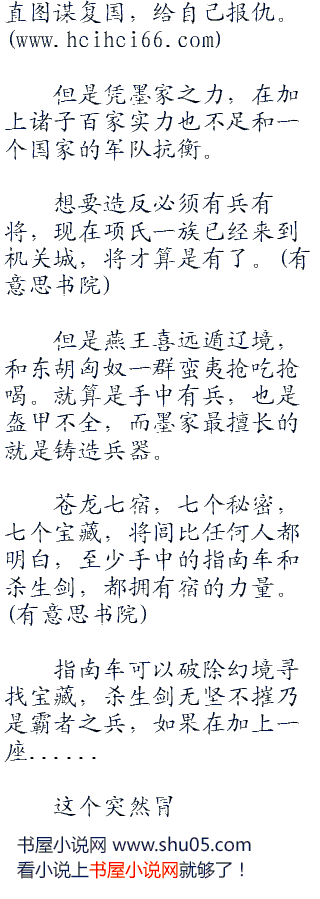 直图谋复国，给自己报仇。
(www.hcihci66.com)
但是凭墨家之力，在加
上诸子百家实力也不足和一
个国家的军队抗衡。
想要造反必须有兵有
将，现在项氏一族已经来到
机关城，将才算是有了。(有
意思书院)
但是燕王喜远遁辽境，
和东胡匈奴一群蛮夷抢吃抢
喝。就算是手中有兵，也是
盔甲不全，而墨家最擅长的
就是铸造兵器。
苍龙七宿，七个秘密，
七个宝藏，将闾比任何人都
明白，至少手中的指南车和
杀生剑，都拥有宿的力量。
(有意思书院)
指南车可以破除幻境寻
找宝藏，杀生剑无坚不摧乃
是霸者之兵，如果在加上一
座......
这个突然冒
书屋小说网 www.shu05.com
看小说上书屋小说网就够了！